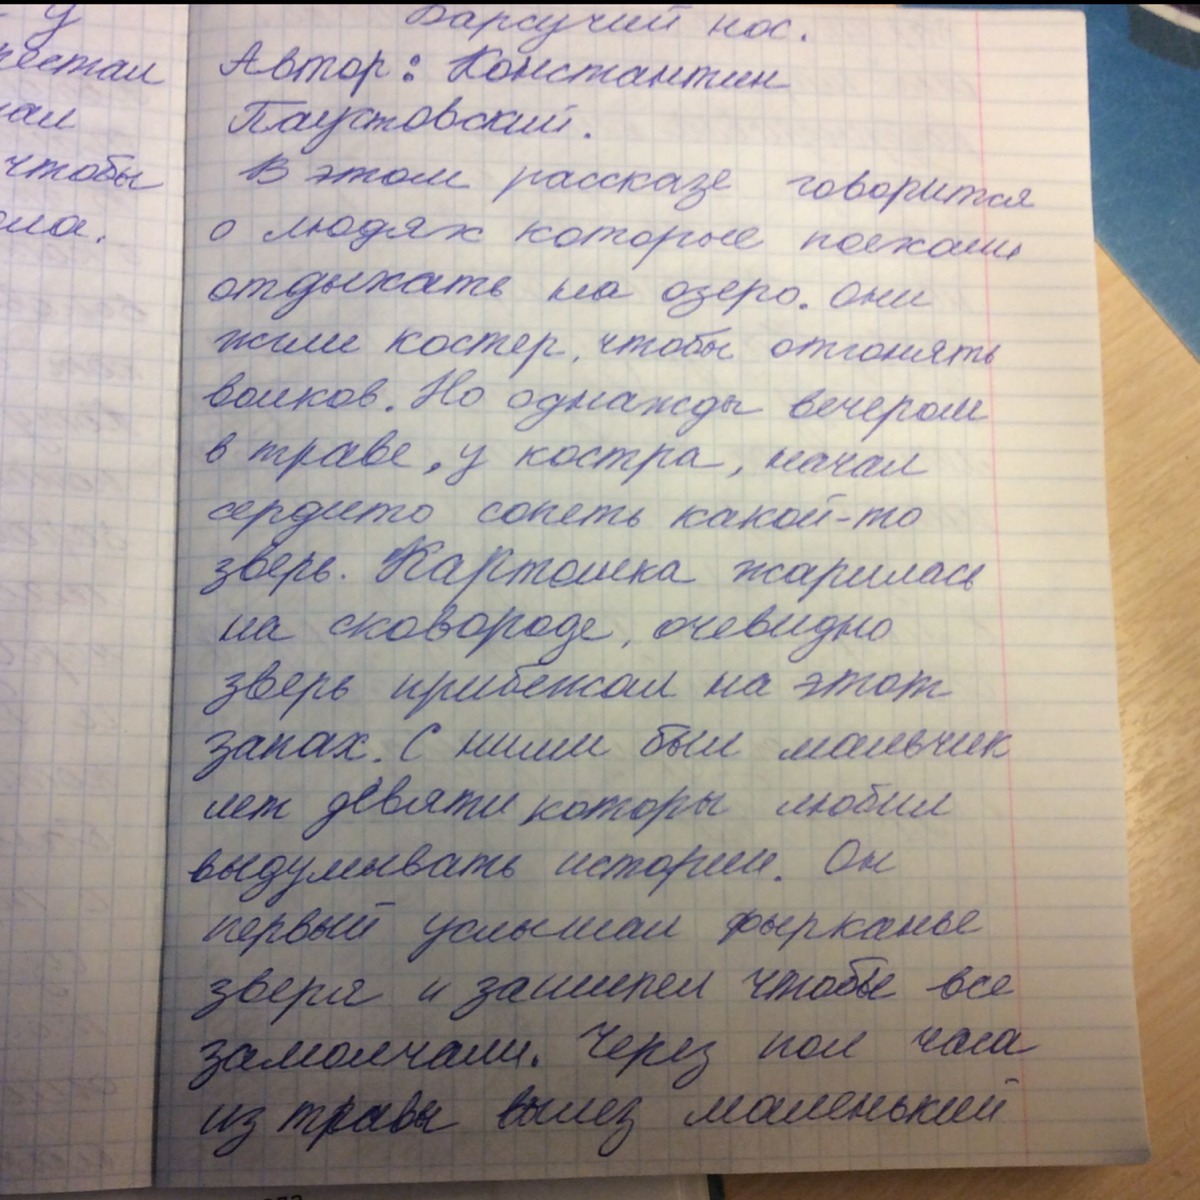 у
чтобы
Барсучий нос.
Автор: Константин
Паустовский.
В этом рассказе говорится
о людях которые поехали
отдыхать на озеро. Они
жгли костер, чтобы отгонять
волков. Но однажды вечером
в траве, у костра, начал
сердито сопеть какой-то
зверь. Картошка жарилась
на сковороде, очевидно
зверь прибежал на этот
запах. С ними был мальчик
лет девяти которы любил
выдумывать истории. Он
первый услышал фырканье
зверя и зашипел чтобы все
замолчали. Через пол часа
из травы вылез маленький